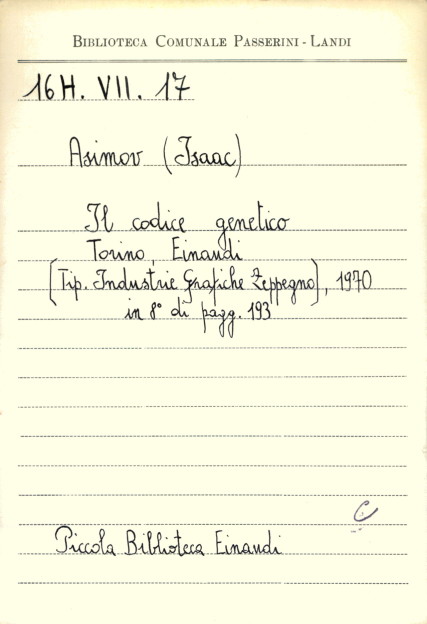 BIBLIOTECA COMUNALE PASSERINI - LANDI
16H. VII. 17
Asimov (Isaac)
Il codice genetico
Torino, Einaudi
[Tip. Industrie Grafiche Zeppegno], 1970
in 8° di pagg. 193
C
Piccola Biblioteca Einaudi